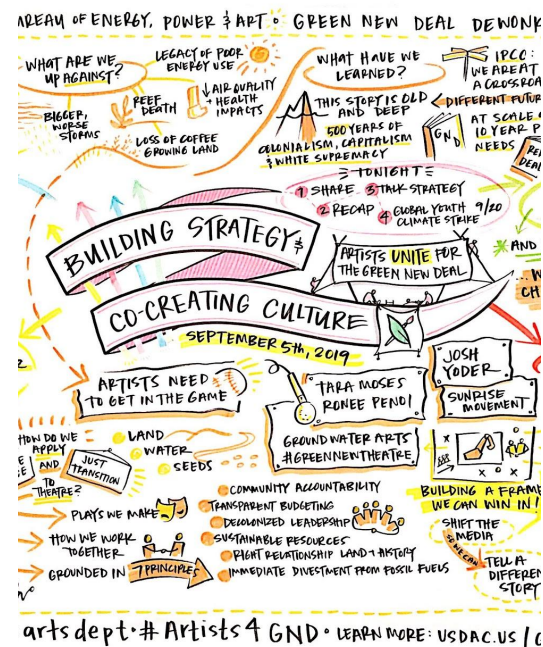 UREAU OF ENERGY, POWER & ART • GREEN NEW DEAL DEWONK
WHAT ARE WE
UP AGAINST?
LEGACY OF POOR
ENERGY USE
BIGGER,
WORSE
STORMS
REEF
DEATH
↓ AIR QUALITY
+ HEALTH
IMPACTS
LOSS OF COFFEE
GROWING LAND
WHAT HAVE WE
LEARNED?
THIS STORY IS OLD
AND DEEP
500 YEARS OF
COLONIALISM, CAPITALISM
& WHITE SUPREMACY
IPCC:
WE ARE AT
A CROSSROA
DIFFERENT FUTUR
GND
AT SCALE
10 YEAR P
NEEDS
DEAL
TONIGHT
1 SHARE
2 RECAP
3 TALK STRATEGY
4 GLOBAL YOUTH 9/20
CLIMATE STRIKE
BUILDING STRATEGY &
CO-CREATING CULTURE
SEPTEMBER 5TH, 2019
ARTISTS UNITE FOR
THE GREEN NEW DEAL
AND
... W
CH
ARTISTS NEED
TO GET IN THE GAME
TARA MOSES
RONEE PENOI
GROUND WATER ARTS
#GREENNEWTHEATRE
JOSH
YODER
SUNRISE
MOVEMENT
HOW DO WE
APPLY
JUST
TRANSITION
AND
TO
THEATRE?
LAND
WATER
SEEDS
PLAYS WE MAKE
HOW WE WORK
TOGETHER
GROUNDED IN 7 PRINCIPLES
COMMUNITY ACCOUNTABILITY
TRANSPARENT BUDGETING
DECOLONIZED LEADERSHIP
SUSTAINABLE RESOURCES
RIGHT RELATIONSHIP LAND + HISTORY
IMMEDIATE DIVESTMENT FROM FOSSIL FUELS
BUILDING A FRAME
WE CAN WIN IN!
SHIFT THE
MEDIA
SO WE CAN
TELL A
DIFFEREN
STORY
arts dept • # Artists 4 GND • LEARN MORE: USDAC.US /